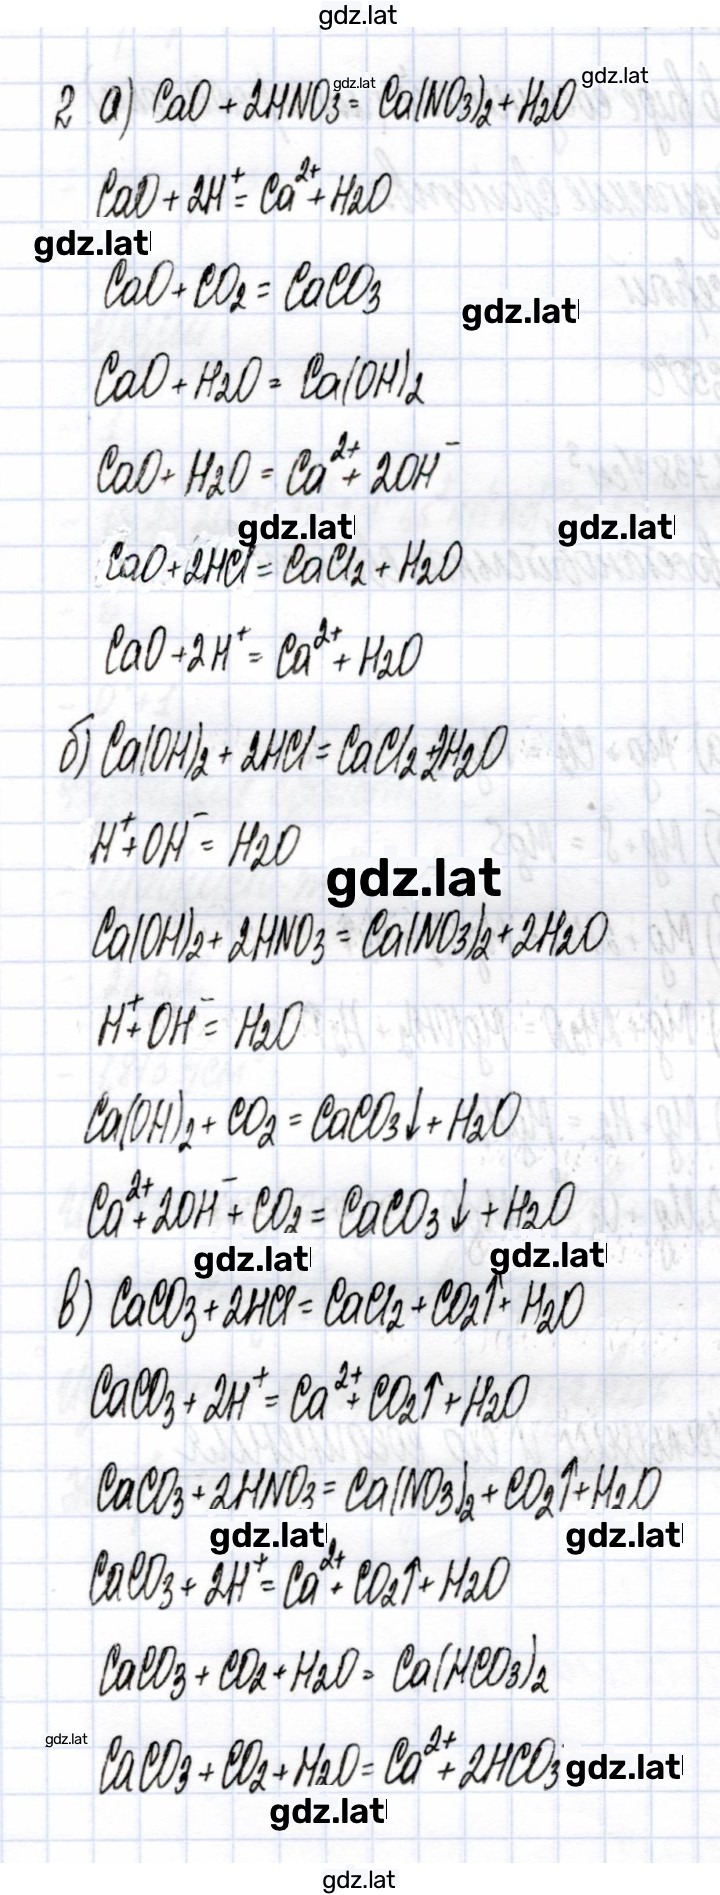 gdz.lat
2 а) CaO + 2HNO3 = Ca(NO3)2 + H2O
gdz.lat gdz.lat
CaO + 2H+ = Ca2+ + H2O
gdz.lat
CaO + CO2 = CaCO3
gdz.lat
CaO + H2O = Ca(OH)2
CaO + H2O = Ca2+ + 2OH-
gdz.lat gdz.lat
CaO + 2HCl = CaCl2 + H2O
CaO + 2H+ = Ca2+ + H2O
б) Ca(OH)2 + 2HCl = CaCl2 + 2H2O
H+ + OH- = H2O
gdz.lat
Ca(OH)2 + 2HNO3 = Ca(NO3)2 + 2H2O
H+ + OH- = H2O
Ca(OH)2 + CO2 = CaCO3↓ + H2O
Ca2+ + 2OH- + CO2 = CaCO3↓ + H2O
gdz.lat gdz.lat
в) CaCO3 + 2HCl = CaCl2 + CO2↑ + H2O
CaCO3 + 2H+ = Ca2+ + CO2↑ + H2O
CaCO3 + 2HNO3 = Ca(NO3)2 + CO2↑ + H2O
gdz.lat gdz.lat
CaCO3 + 2H+ = Ca2+ + CO2↑ + H2O
CaCO3 + CO2 + H2O = Ca(HCO3)2
gdz.lat
CaCO3 + CO2 + H2O = Ca2+ + 2HCO3
gdz.lat
gdz.lat
gdz.lat